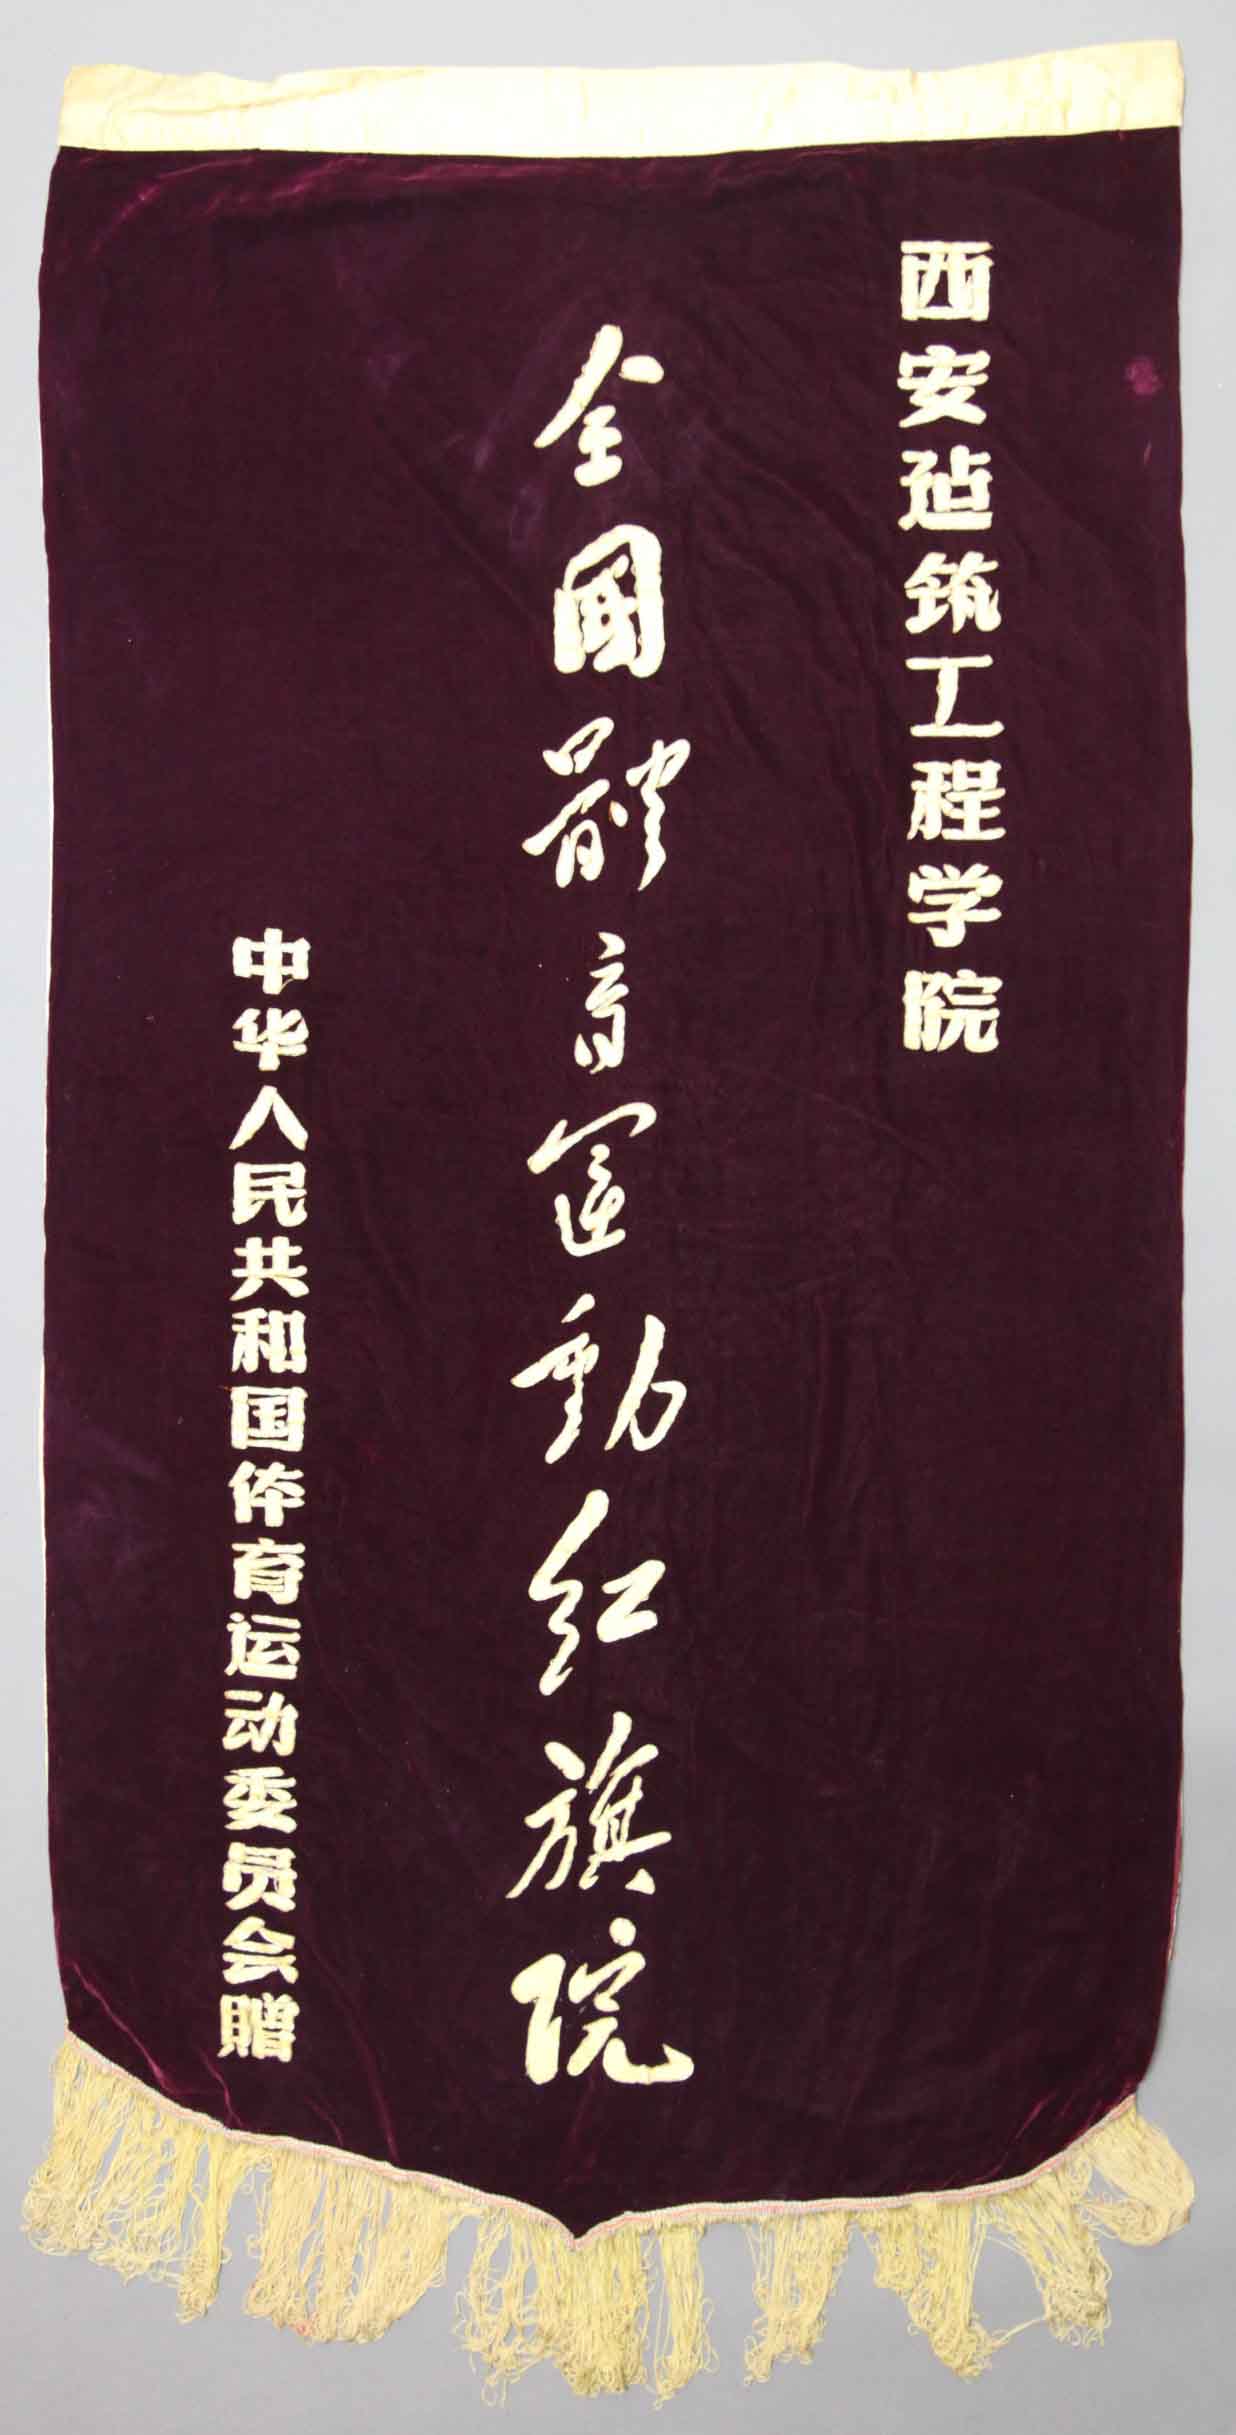 西安建筑工程学院
全國體育運動红旗院
中华人民共和国体育运动委员会赠